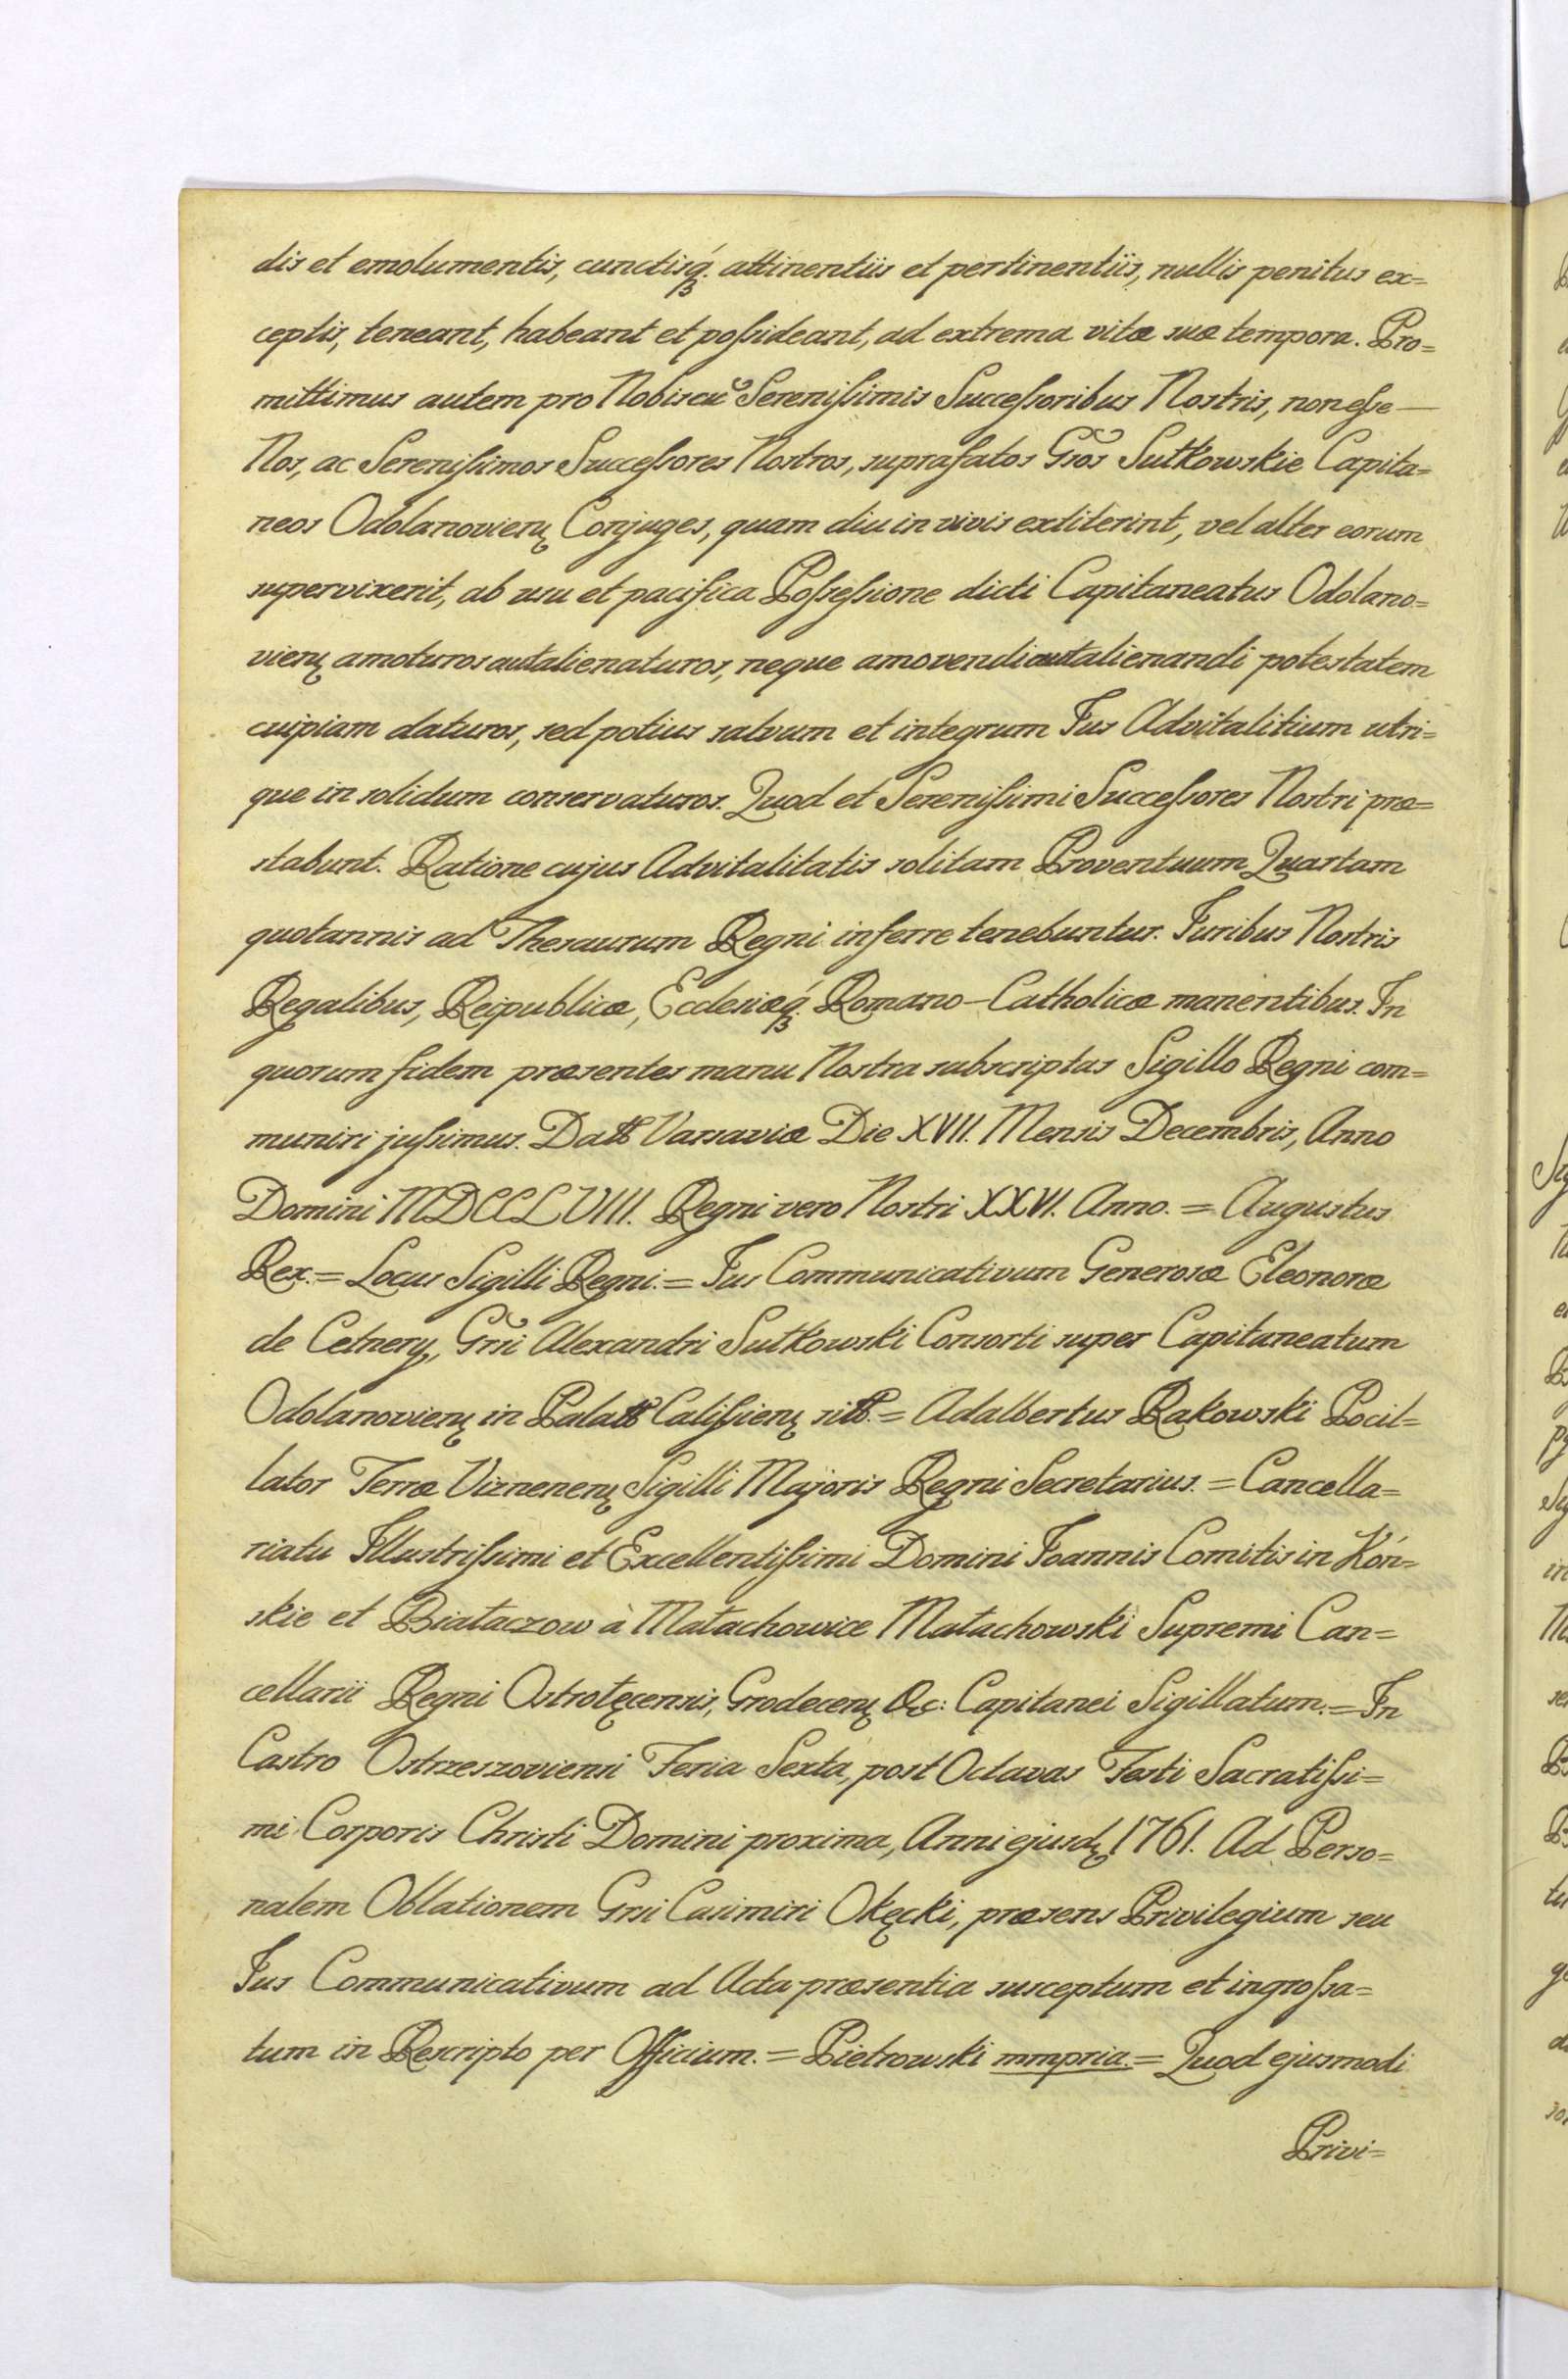 dis et emolumentis, cunctisq́. attinentiis et pertinentiis, nullis penitus ex=
ceptis, teneant, habeant et poſsideant, ad extrema vitæ suæ tempora. Pro=
mittimus autem pro Nobiscu᷃ Sereniſsimis Succeſsoribus Nostris, non eſse —
Nos, ac Sereniſsimos Succeſsores Nostros, suprafatos Gros̃ Sułkowskie Capita=
neos Odolanovien̨ Conjuges, quam diu in vivis extiterint, vel alter eorum
supervixerit, ab usu et pacifica Poſseſsione dicti Capitaneatus Odolano=
vien̨ amoturos aut alienaturos, neque amovendi aut alienandi potestatem
cuipiam daturos, sed potius salvum et integrum Jus Advitalitium utri=
que in solidum conservaturos. Quod et Sereniſsimi Succeſsores Nostri præ=
stabunt. Ratione cujus Advitalitatis solitam Proventuum Quartam
quotannis ad Thesaurum Regni inferre tenebuntur. Juribus Nostris
Regalibus, Reipublicæ, Ecclesiæq́. Romano-Catholicæ manentibus. In
quorum fidem præsentes manu Nostra subscriptas Sigillo Regni com=
muniri juſsimus. Datt Varsaviæ Die XVII. Mensis Decembris, Anno
Domini MDCCLVIII. Regni vero Nostri XXVI. Anno. = Augustus
Rex. = Locus Sigilli Regni. = Jus Communicativum Generosæ Eleonoræ
de Cetnery, Grsĩ Alexandri Sułkowski Consorti super Capitaneatum
Odolanovien̨ in Palatt Caliſsien̨ sitt. = Adalbertus Rakowski Pocil=
lator Terræ Viznenen̨ Sigilli Majoris Regni Secretarius. = Cancella=
riatu Illustriſsimi et Excellentiſsimi Domini Joannis Comitis in Kón=
skie et Białaczow à Małachowice Małachowski Supremi Can=
cellarii Regni Ostrołęcensis, Grodecen̨ &c: Capitanei Sigillatum. = In
Castro Ostrzeszoviensi Feria Sexta, post Octavas Festi Sacratiſsi=
mi Corporis Christi Domini proxima, Anni ejusd̨ 1761. Ad Perso=
nalem Oblationem Grsi Casimiri Okęcki, præsens Privilegium seu
Jus Communicativum ad Acta præsentia susceptum et ingroſsa=
tum in Rescripto per Officium. = Pietrowski mmpria. = Quod ejusmodi
Privi=